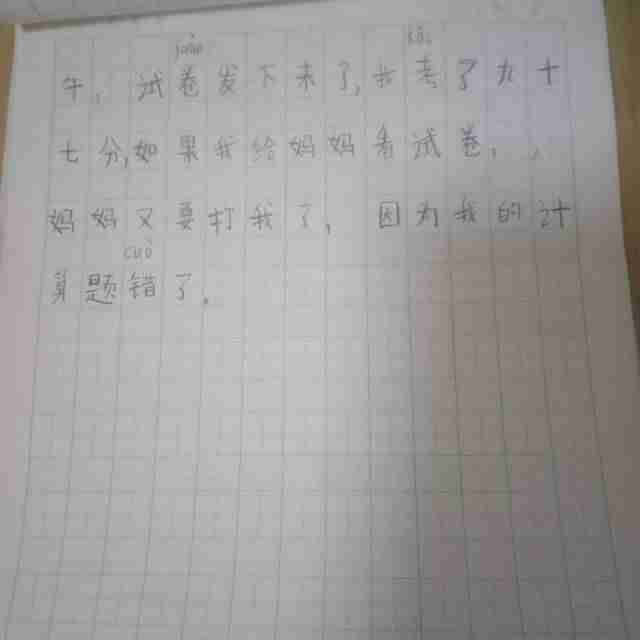 juàn kǎo
午，试卷发下来了，我考了九十
七分，如果我给妈妈看试卷，
妈妈又要打我了，因为我的计
cuò
算题错了。